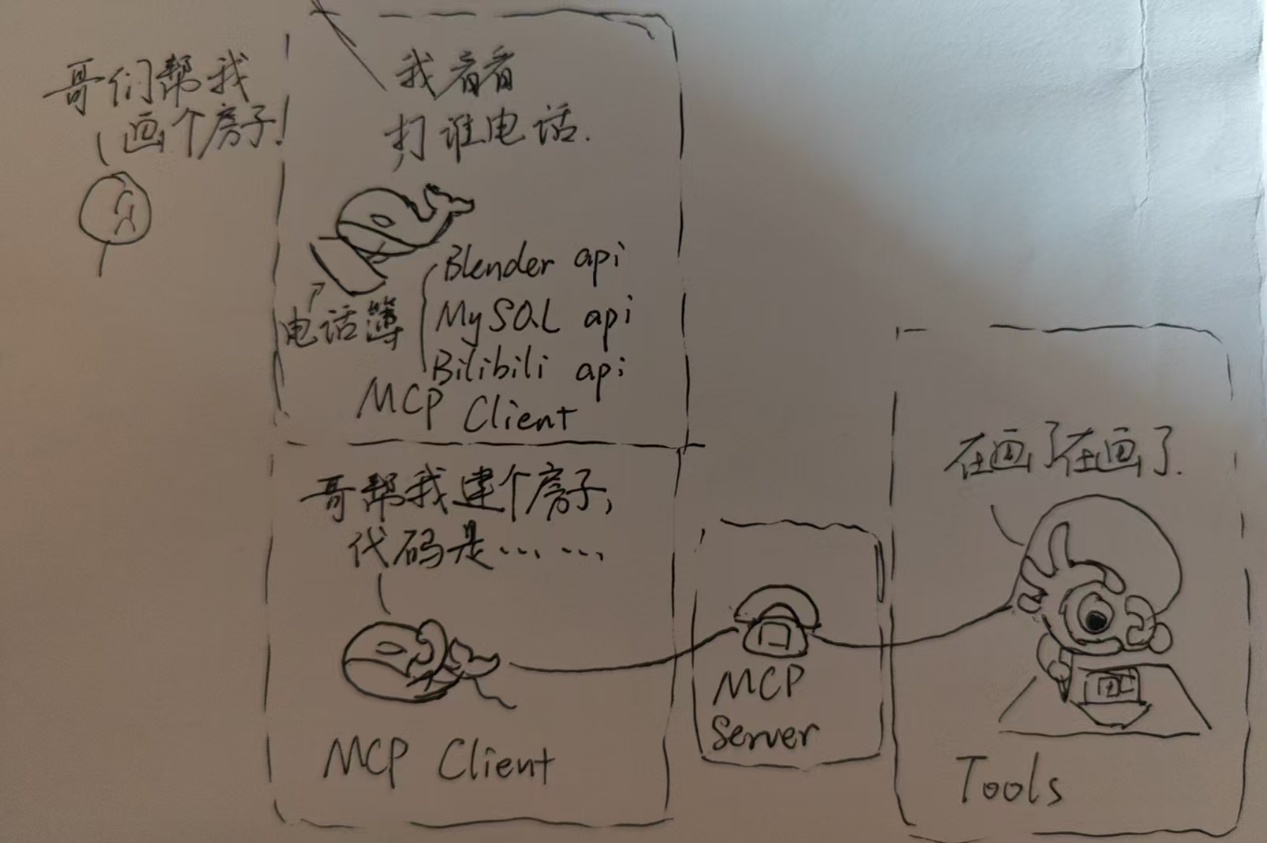 哥们帮我
画个房子!
我看看
打谁电话.
电话簿
Blender api
MySQL api
Bilibili api
MCP Client
哥帮我建个房子,
代码是……
MCP Client
MCP
Server
在画了在画了.
Tools